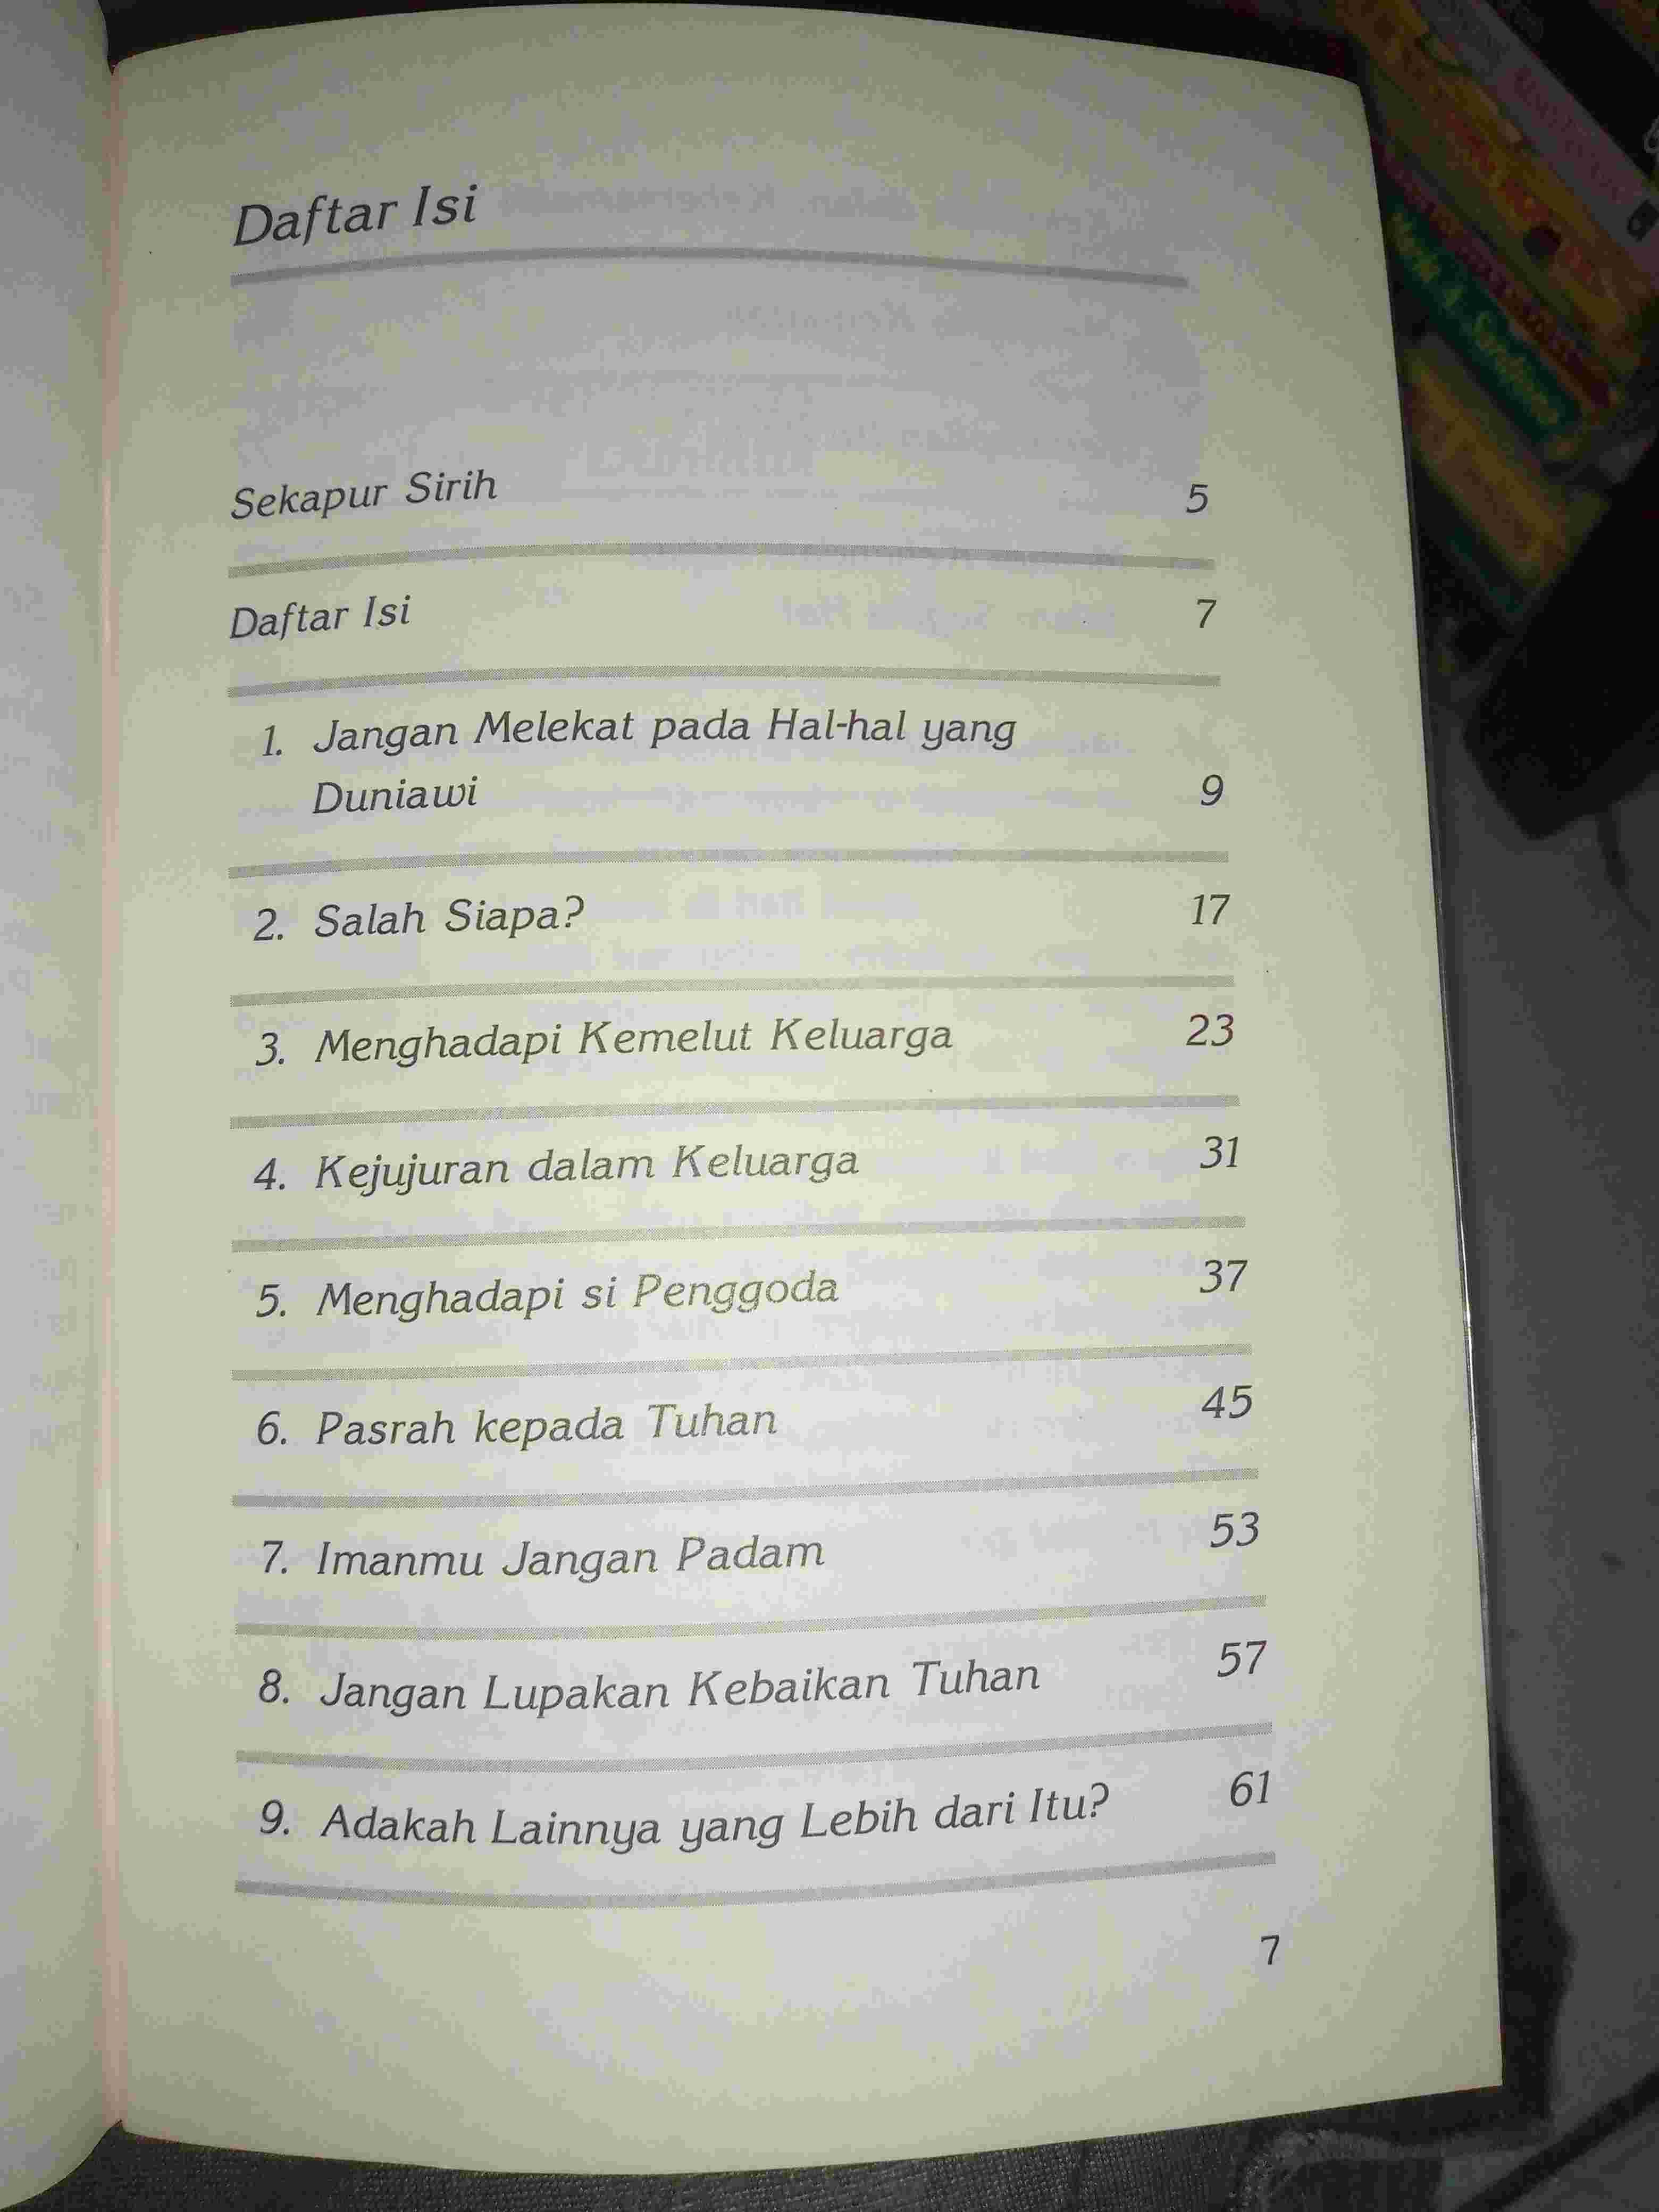 Daftar Isi
Sekapur Sirih 5
Daftar Isi 7
1. Jangan Melekat pada Hal-hal yang
Duniawi 9
2. Salah Siapa? 17
3. Menghadapi Kemelut Keluarga 23
4. Kejujuran dalam Keluarga 31
5. Menghadapi si Penggoda 37
6. Pasrah kepada Tuhan 45
7. Imanmu Jangan Padam 53
8. Jangan Lupakan Kebaikan Tuhan 57
9. Adakah Lainnya yang Lebih dari Itu? 61
7